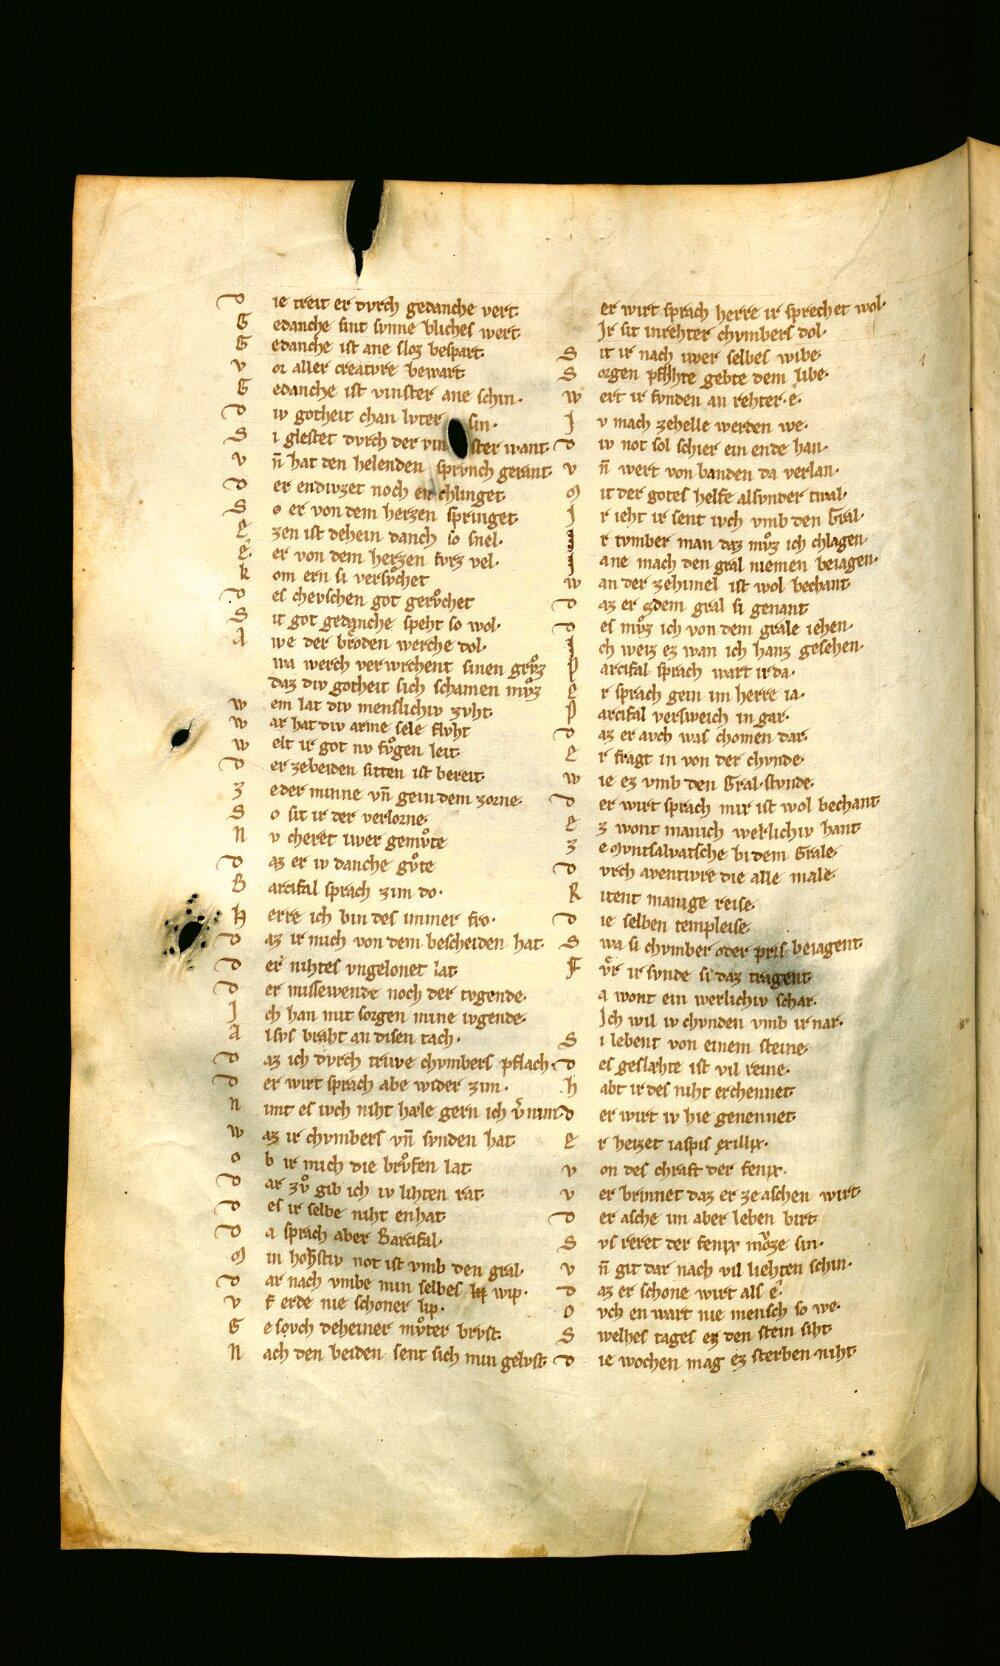 D ie treit er dvrch gedanche vert
G edanche sint svnne bliches wert
G edanche ist ane sloz bespart
v or aller creatvre bewart
G edanche ist vinster ane schin.
D iv gotheit chan lvter sin.
S i glestet dvrch der vinster want.
v n̄ hat den helenden sprvnch gerant
D er endivzet noch en chlinget
S o er von dem herzen springet.
E zen ist dehein danch so snel.
E er von dem herzen fvrz vel.
k om ern si versvͦchet
D es chevschen got gervͦchet
S it got gedanche speht so wol.
A we der brͦden werche dol.
wa werch verwrchent sinen grvͦz
daz div gotheit sich schamen mvͦz
w em lat div menslichiv zvht.
w ar hat div arme sele flvht
w elt ir got nv fvͦgen leit.
D er zebeiden sitten ist bereit.
z eder minne vn̄ gein dem zorne.
S o sit ir der verlorne.
N v cheret iwer gemvͦte
D az er iv danche gvͦte
B arcifal sprach zim do.
H erre ich bin des immer fro.
D az ir mich von dem bescheiden hat.
D er nihtes vngelonet lat
D er missewende noch der tvgende.
J ch han mit sorgen mine ivgende.
A lsvs braht an disen tach.
D az ich dvrch triwe chvmbers pflach.
D er wirt sprach abe wider zim.
n imt es ivch niht hæle gern ich v̄nim
w az ir chvmbers vn̄ svnden hat
o b ir mich die brvͦfen lat
D ar zvͦ gib ich iv lihten rat.
D es ir selbe niht enhat
D a sprach aber Barcifal.
M in hohstiv not ist vmb den gral.
D ar nach vmbe min selbes wip.
v f erde nie schoner lip.
G e sovch deheiner mvͦter brvst.
N ach den beiden sent sich min gelvst.
er wirt sprach herre ir sprechet wol.
Jr sit inrehter chvmbers dol.
S it ir nach iwer selbes wibe.
S orgen pflihte gebte dem libe.
w ert ir fvnden an rehter. e.
J v mach zehelle werden we.
D iv not sol schier ein ende han.
v n̄ wert von banden da verlan.
M it der gotes helfe alsvnder twal.
J r ieht ir sent ivch vmb den Gral.
J r tvmber man daz mvͦz ich chlagen.
J ane mach den gral niemen beiagen.
w an der zehimel ist wol bechant
D az er zdem gral si genant
D es mvͦz ich von dem grale iehen.
J ch weiz ez wan ich hanz gesehen.
P arcifal sprach wart ir da.
E r sprach gein im herre ia.
P arcifal versweich in gar.
D az er avch was chomen dar.
E r fragt in von der chvnde.
w ie ez vmb den Gral stvnde.
D er wirt sprach mir ist wol bechant
E z wont manich werlichiv hant
z e Mvntsalvatsche bi dem Grale.
D vrch aventivre die alle male.
R itent manige reise.
D ie selben templeise.
S wa si chvmber oder pris beiagent
F vͦr ir svnde si daz tragent
a wont ein werlichiv schar.
Ich wil iv chvnden vmb ir nar.
S i lebent von einem steine.
D es geslæhte ist vil reine.
h abt ir des niht erchennet
D er wirt iv hie genennet.
E r heizet iaspis exillix.
v on des chraft der fenix.
v er brinnet daz er ze aschen wirt
D er asche im aber leben birt
S vs reret der fenix mvͦze sin.
v n̄ git dar nach vil liehten schin.
D az er schone wirt als e.
O vch en wart nie mensch so we.
S welhes tages ez den stein siht
D ie wochen mag ez sterben niht